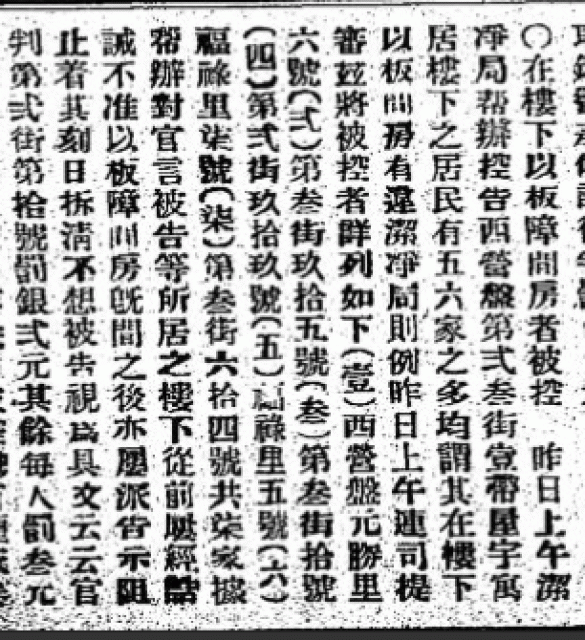 ○在樓下以板障間房者被控　昨日上午潔
凈局帮辦控告西營盤第弍叁街壹帶屋宇寓
居樓下之居民有五六家之多均謂其在樓下
以板間房有違潔凈局則例昨日上午連司提
審茲將被控者群列如下（壹）西營盤元勝里
六號（弍）第叁街玖拾五號（叁）第叁街拾號
（四）第弍街玖拾玖號（五）祿里五號（六）
福祿里柒號（柒）第叁街六拾四號共柒家據
帮辦對官言被告等所居之樓下從前屢經
誡不准以板障間房旣間之後亦屢派告示阻
止着其刻日拆淸不想被告視爲具文云云官
判第弍街第拾號罰銀弍元其餘每人罰叁元